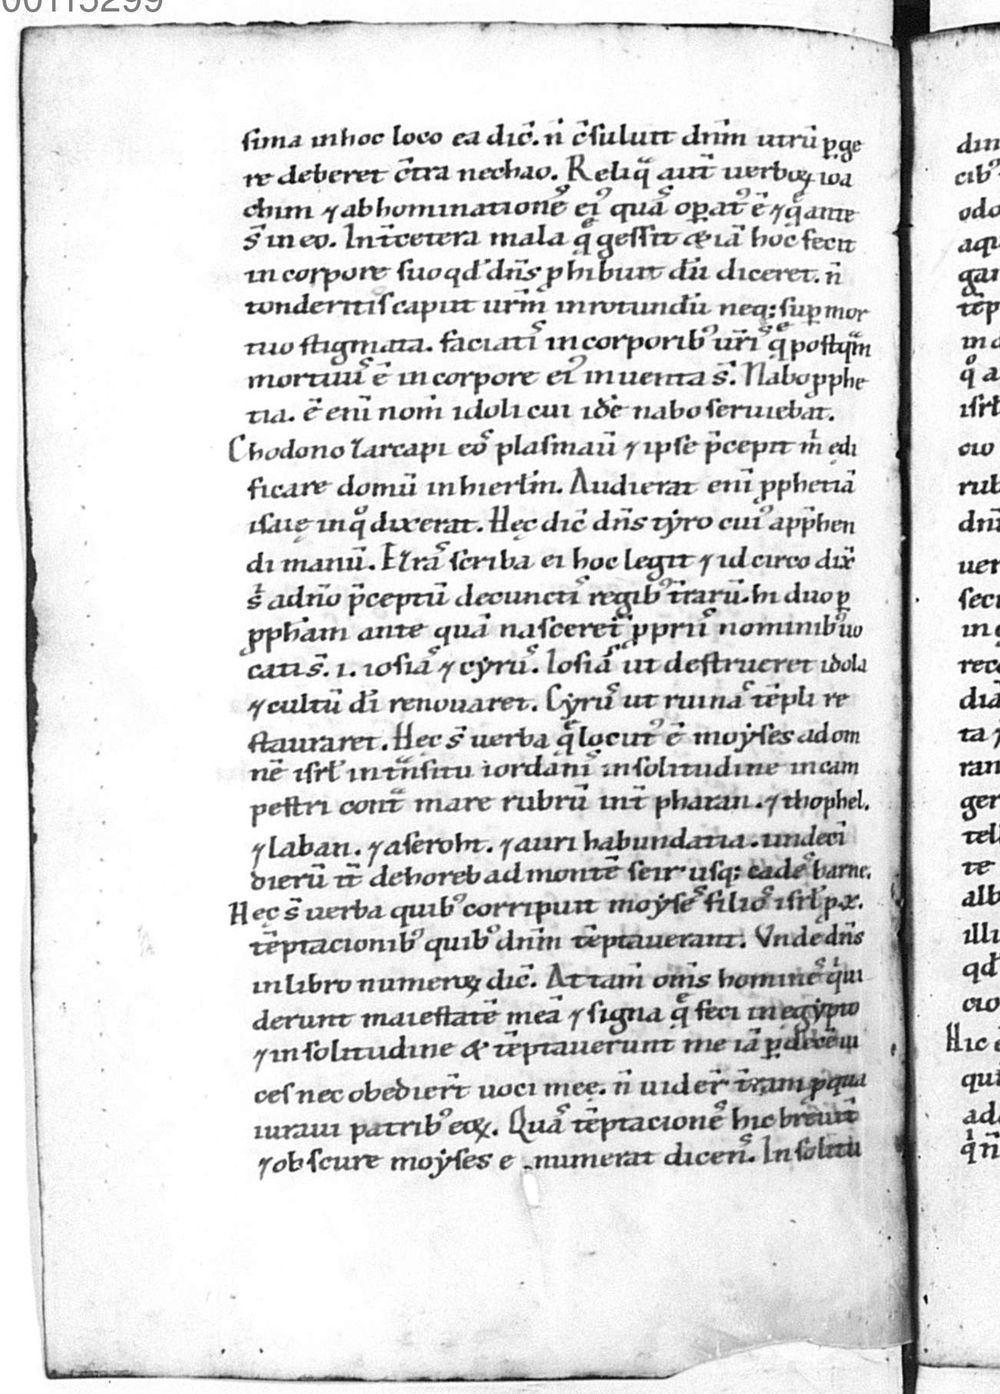 00115299
sima inhoc loco ea dic̄. n̄ c̄sulutt dnm̄ utrū ꝑge
re deberet c̄tra nechao. Reliq̄ aut̄ uerboꝝ ioa
chim ⁊ abhominationē eiꝰ quā oꝑatꝰ ē ⁊ q̄ ante
s̄ ineo. Int̄cetera mala q̄ gessit & iā hoc fecit
in corpore suo qd̄ dn̄s ꝓhibuit dū diceret. n̄
tonderitis caput ur̄m inrotundū neq; suꝑ mor
tuo stigmata. faciatis incorporibꝰ ur̄is q̄ postqm̄
mortuus ē in corpore eiꝰ inuenta s̄. Nabo ꝓphe
tia. ē enī nom̄ idoli cui idē nabo seruiebat.
Chodono zarcapi eos plasmaū ⁊ ipse p̄cepit m̄ edi
ficare domū inhierlm̄. Audierat enī ꝓphetiā
isaię inq̄ dixerat. Hęc dic̄ dn̄s tẏro cuiꝰ app̄hen
di manū. Ezras scriba ei hoc legit ⁊ idcirco dix̄
s̄ adn̄o p̄ceptū decunctis regibꝰ tr̄arū. hi duo ꝑ
ꝓph̄am ante quā nascerēt ꝓpriis nominibꝰ uo
cati s̄. i. iosias ⁊ cẏrus. Iosias ut destrueret idola
⁊ cultū dī renouaret. Cẏrus ut ruinas tēpli re
stauraret. Hęc s̄ uerba q̄ locutꝰ ē moẏses adom
nē isrl̄ intn̄situ iordanis insolitudine incam
pestri cont̄ mare rubrū int̄ pharan. ⁊ thophel.
⁊ laban. ⁊ aseroht. ⁊ auri habundatia. undeci
dierū it̄ dehoreb admontē seir usq; cades barne.
Hęc s̄ uerba quibꝰ corripuit moẏses filios isrl̄ ꝓ x.
tēptacionibꝰ quibꝰ dnm̄ tēptauerant. Vnde dn̄s
inlibro numeroꝝ dic̄. Attam̄ om̄s homines qui ui
derunt maiestatē meā ⁊ signa q̄ feci inegẏpto
⁊ insolitudine & tēptauerunt me iā ꝑ decē ui
ces nec obedier̄t uoci meę. n̄ uider̄ tr̄am ꝓ qua
iuraui patribꝰ eoꝝ. Quas tēptaciones hic breuit̄
⁊ obscure moẏses e numerat dicens. In solitu